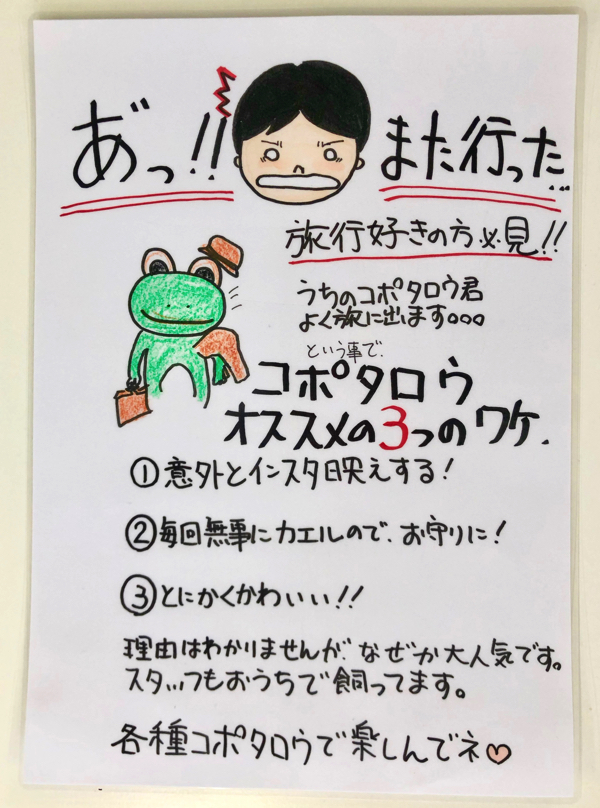 あ゛っ!! また行った...
旅行好きの方必見!!
うちのコポタロウ君
よく旅に出ます。。。
という事で、
コポタロウ
オススメの3つのワケ.
①意外とインスタ映えする!
②毎回無事にカエルので、お守りに!
③とにかくかわいい!!
理由はわかりませんが、なぜか大人気です。
スタッフもおうちで飼ってます。
各種コポタロウで楽しんでネ♡